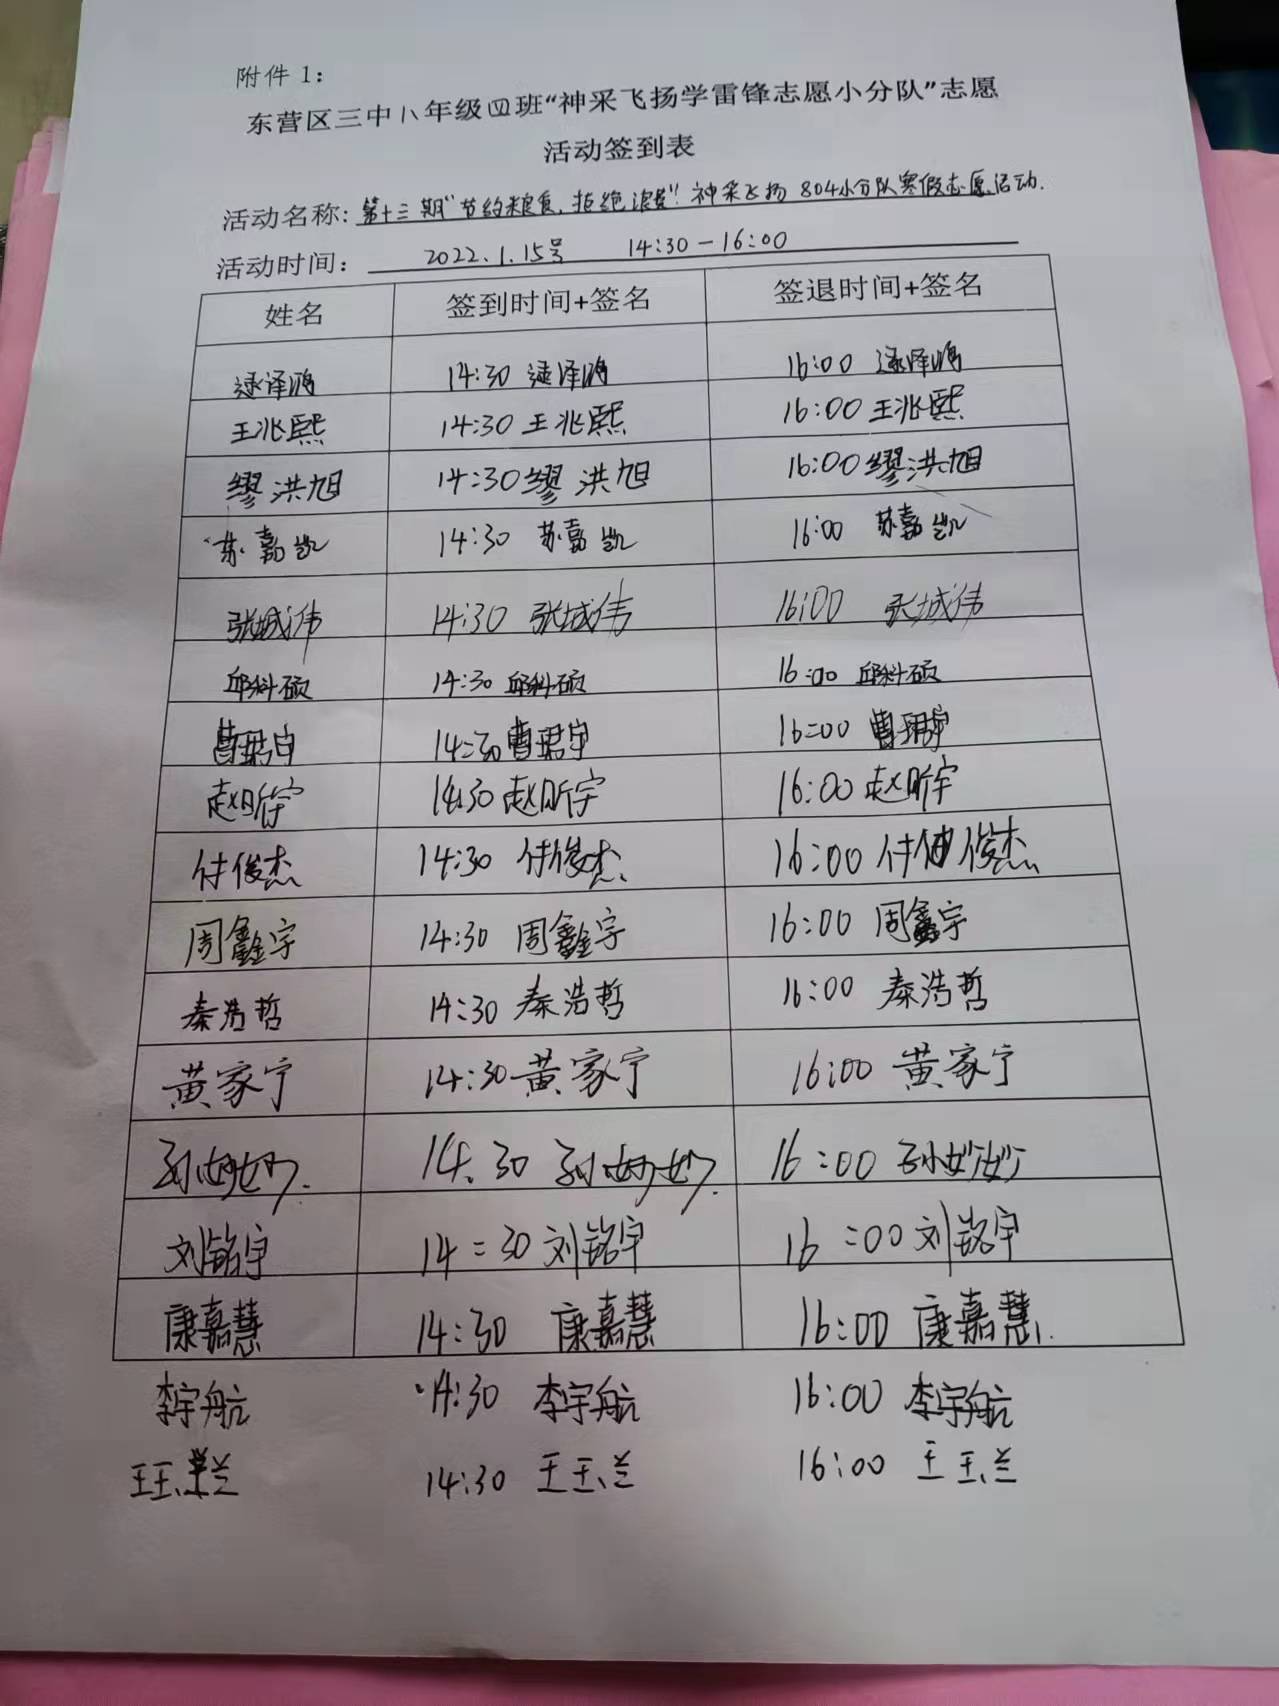 附件 1：
东营区三中八年级四班“神采飞扬学雷锋志愿小分队”志愿
活动签到表
活动名称：第十三期“节约粮食，拒绝浪费”！神采飞扬804小分队寒假志愿活动.
活动时间： 2022.1.15号 14:30-16:00
姓名 签到时间+签名 签退时间+签名
逯泽鸿 14:30 逯泽鸿 16:00 逯泽鸿
王兆熙 14:30 王兆熙 16:00 王兆熙
缪洪旭 14:30 缪洪旭 16:00 缪洪旭
苏嘉凯 14:30 苏嘉凯 16:00 苏嘉凯
张城伟 14:30 张城伟 16:00 张城伟
邱科硕 14:30 邱科硕 16:00 邱科硕
曹珺宇 14:30 曹珺宇 16:00 曹珺宇
赵昕宇 14:30 赵昕宇 16:00 赵昕宇
付俊杰 14:30 付俊杰 16:00 付俊杰
周鑫宇 14:30 周鑫宇 16:00 周鑫宇
秦浩哲 14:30 秦浩哲 16:00 秦浩哲
黄家宁 14:30 黄家宁 16:00 黄家宁
孙妙妙. 14:30 孙妙妙. 16:00 孙妙妙
刘铭宇 14:30 刘铭宇 16:00 刘铭宇
康嘉慧 14:30 康嘉慧 16:00 康嘉慧.
李宇航 14:30 李宇航 16:00 李宇航
王玉兰 14:30 王玉兰 16:00 王玉兰